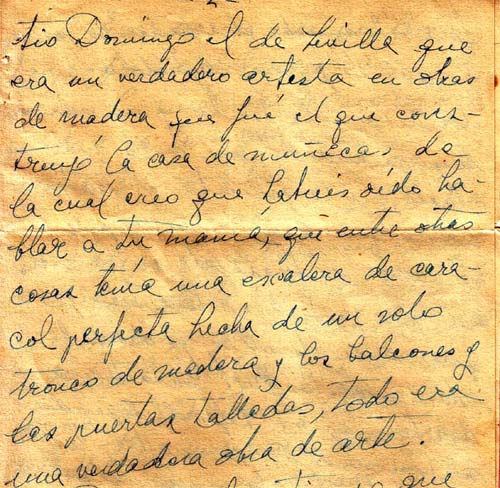 -2-
tio Domingo el de Sevilla que
era un verdadero artista en obras
de madera que fué el que cons-
truyó la casa de muñecas de
la cual creo que habeis oído ha-
blar a tu mamá, que entre otras
cosas tenía una escalera de cara-
col perfecta hecha de un solo
tronco de madera y los balcones y
las puertas talladas, todo era
una verdadera obra de arte.
tiempo que